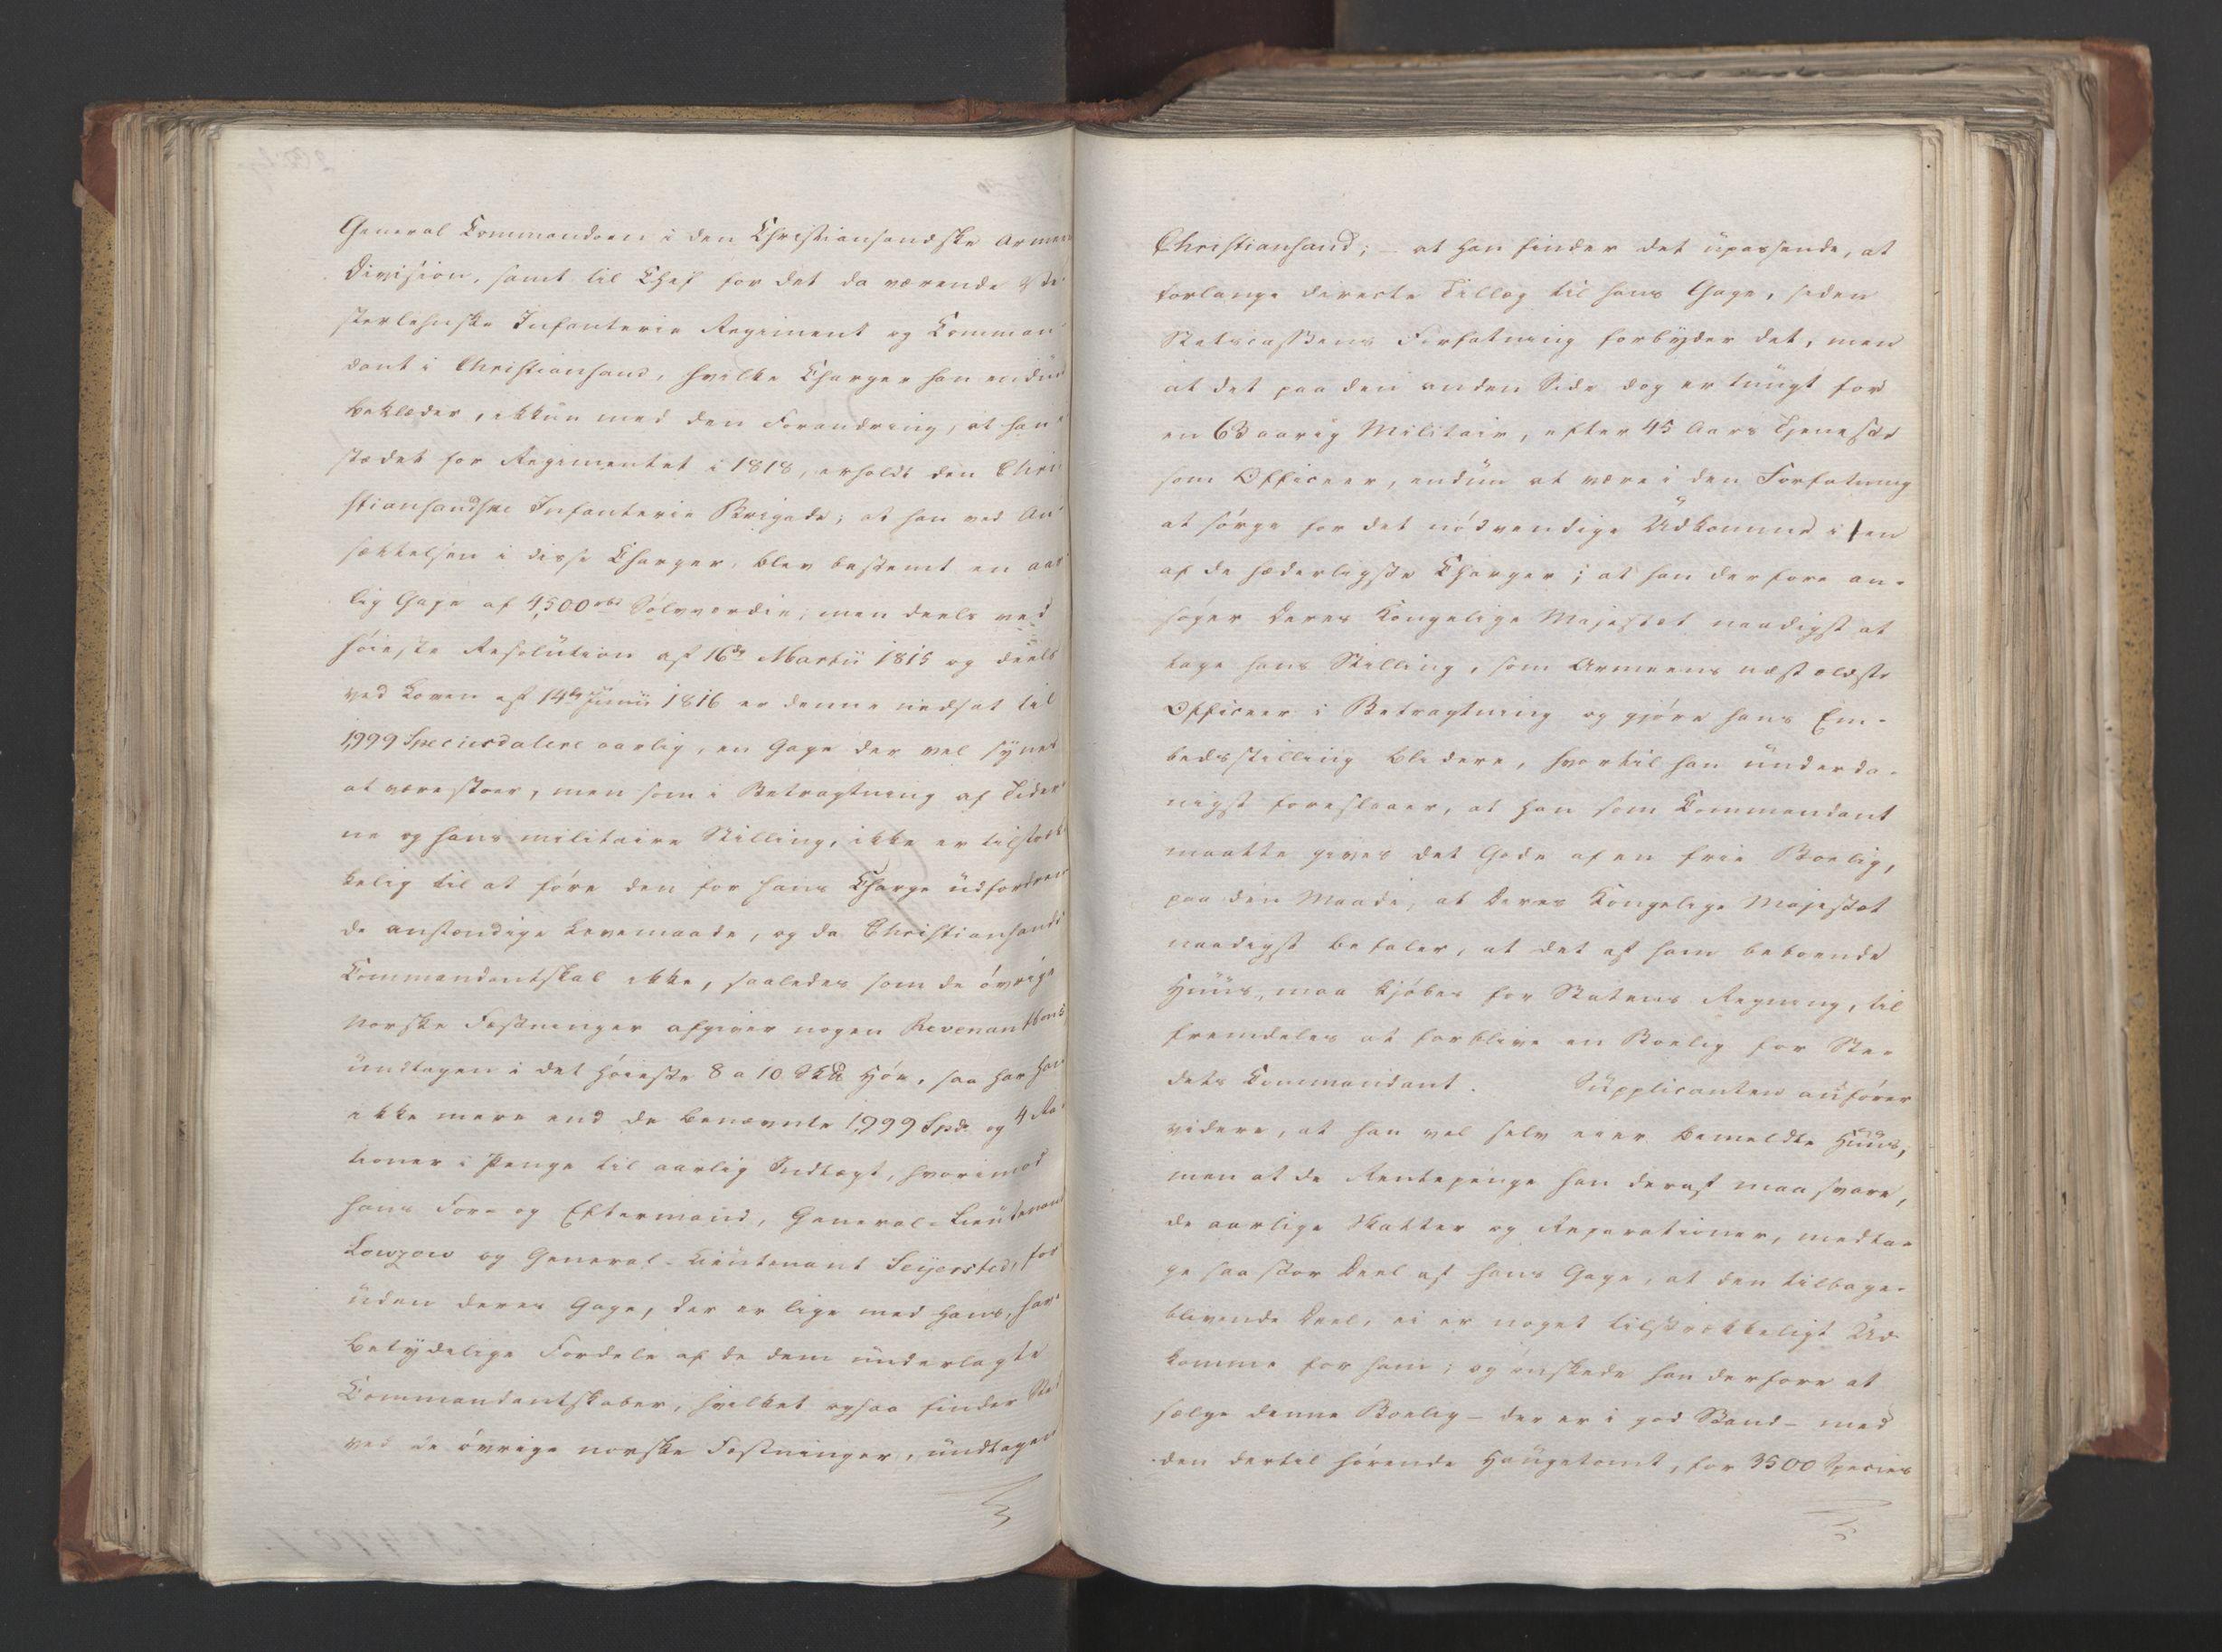 General Commandoen i den Christiansandske Armee
Division, samt til Chef for det da værende Ve-
sterlehnske Infanterie Regiment og Comman-
dant i Christiansand, hvilke Charger han endnu
beklæder, ikkun med den Forandring, at han i
stædet for Regimentet i 1818, erholdt den Chri-
stiansandske Infanterie Brigade; at han ved An-
sættelsen i disse Charger, blev bestemt en aar-
lig Gage af 4,500 rbd Sølvværdie; men deels ved
høieste Resolution af 16de Martii 1815 og deels
ved Loven af 14de Junii 1816 er denne nedsat til
1,999 Speciesdalere aarlig, en Gage der vel synes
at være stoer, men som i Betragtning af Tider-
ne og hans militaire Stilling, ikke er tilstræk-
kelig til at føre den for hans Charge udfordren-
de anstændige Levemaade, og da Christiansands
Commandantskab ikke, saaledes som de øvrige
norske Fæstninger afgiver nogen Revenant
undtagen i det høieste 8 a 10 Sk℔ Høe, saa har han
ikke mere end de benævnte 1,999 Spd. og 4 Ra-
tioner i Penge til aarlig Indtægt, hvorimod
hans For- og Eftermænd, General-Lieutenant
Lowzow og General-Lieutenant Seyersted, for-
uden deres Gage, der er lige med hans, har
betydelige Fordele af de dem underlagte
Commandantskaber, hvilket ogsaa finder Sted
ved de øvrige norske Fæstninger, undtagen
Christiansand; – at han finder det upassende, at
forlange directe Tillæg til hans Gage, siden
Statscassens Forfatning forbyder det, men
at det paa den anden Side dog er tungt for
en 63 aarig Militair, efter 45 Aars Tjeneste
som Officeer, endnu at være i den Forfatning
at sørge for det nødvendige Udkomme i en
af de hæderligste Charger; at han derfore an-
søger Deres Kongelige Majestæt naadigst at
tage hans Stilling, som Armeens næst ældste
Officeer i Betragtning og gjøre hans Em-
bedsstilling blidere, hvortil han underda-
nigst foreslaaer, at han som Commandant
maatte gives det Gode af en frie Boelig,
paa den Maade, at Deres Kongelige Majestæt
naadigst befaler, at det af ham beboende
Huus, maa kjøbes for Statens Regning, til
fremdeles at forblive en Boelig for Ste-
dets Commandant. Supplicanten anfører
videre, at han vel selv eier bemeldte Huus,
men at de Rentepenge han deraf maa svare,
de aarlige Skatter og Reparationer, medta-
ge saa stor Deel af hans Gage, at den tilbage-
blivende Deel, ei er noget tilstrækkeligt Ud-
komme for ham; og ønskede han derfore at
sælge denne Boelig – der er i god Stand – med
den dertil hørende Haugetomt, for 3500 Species